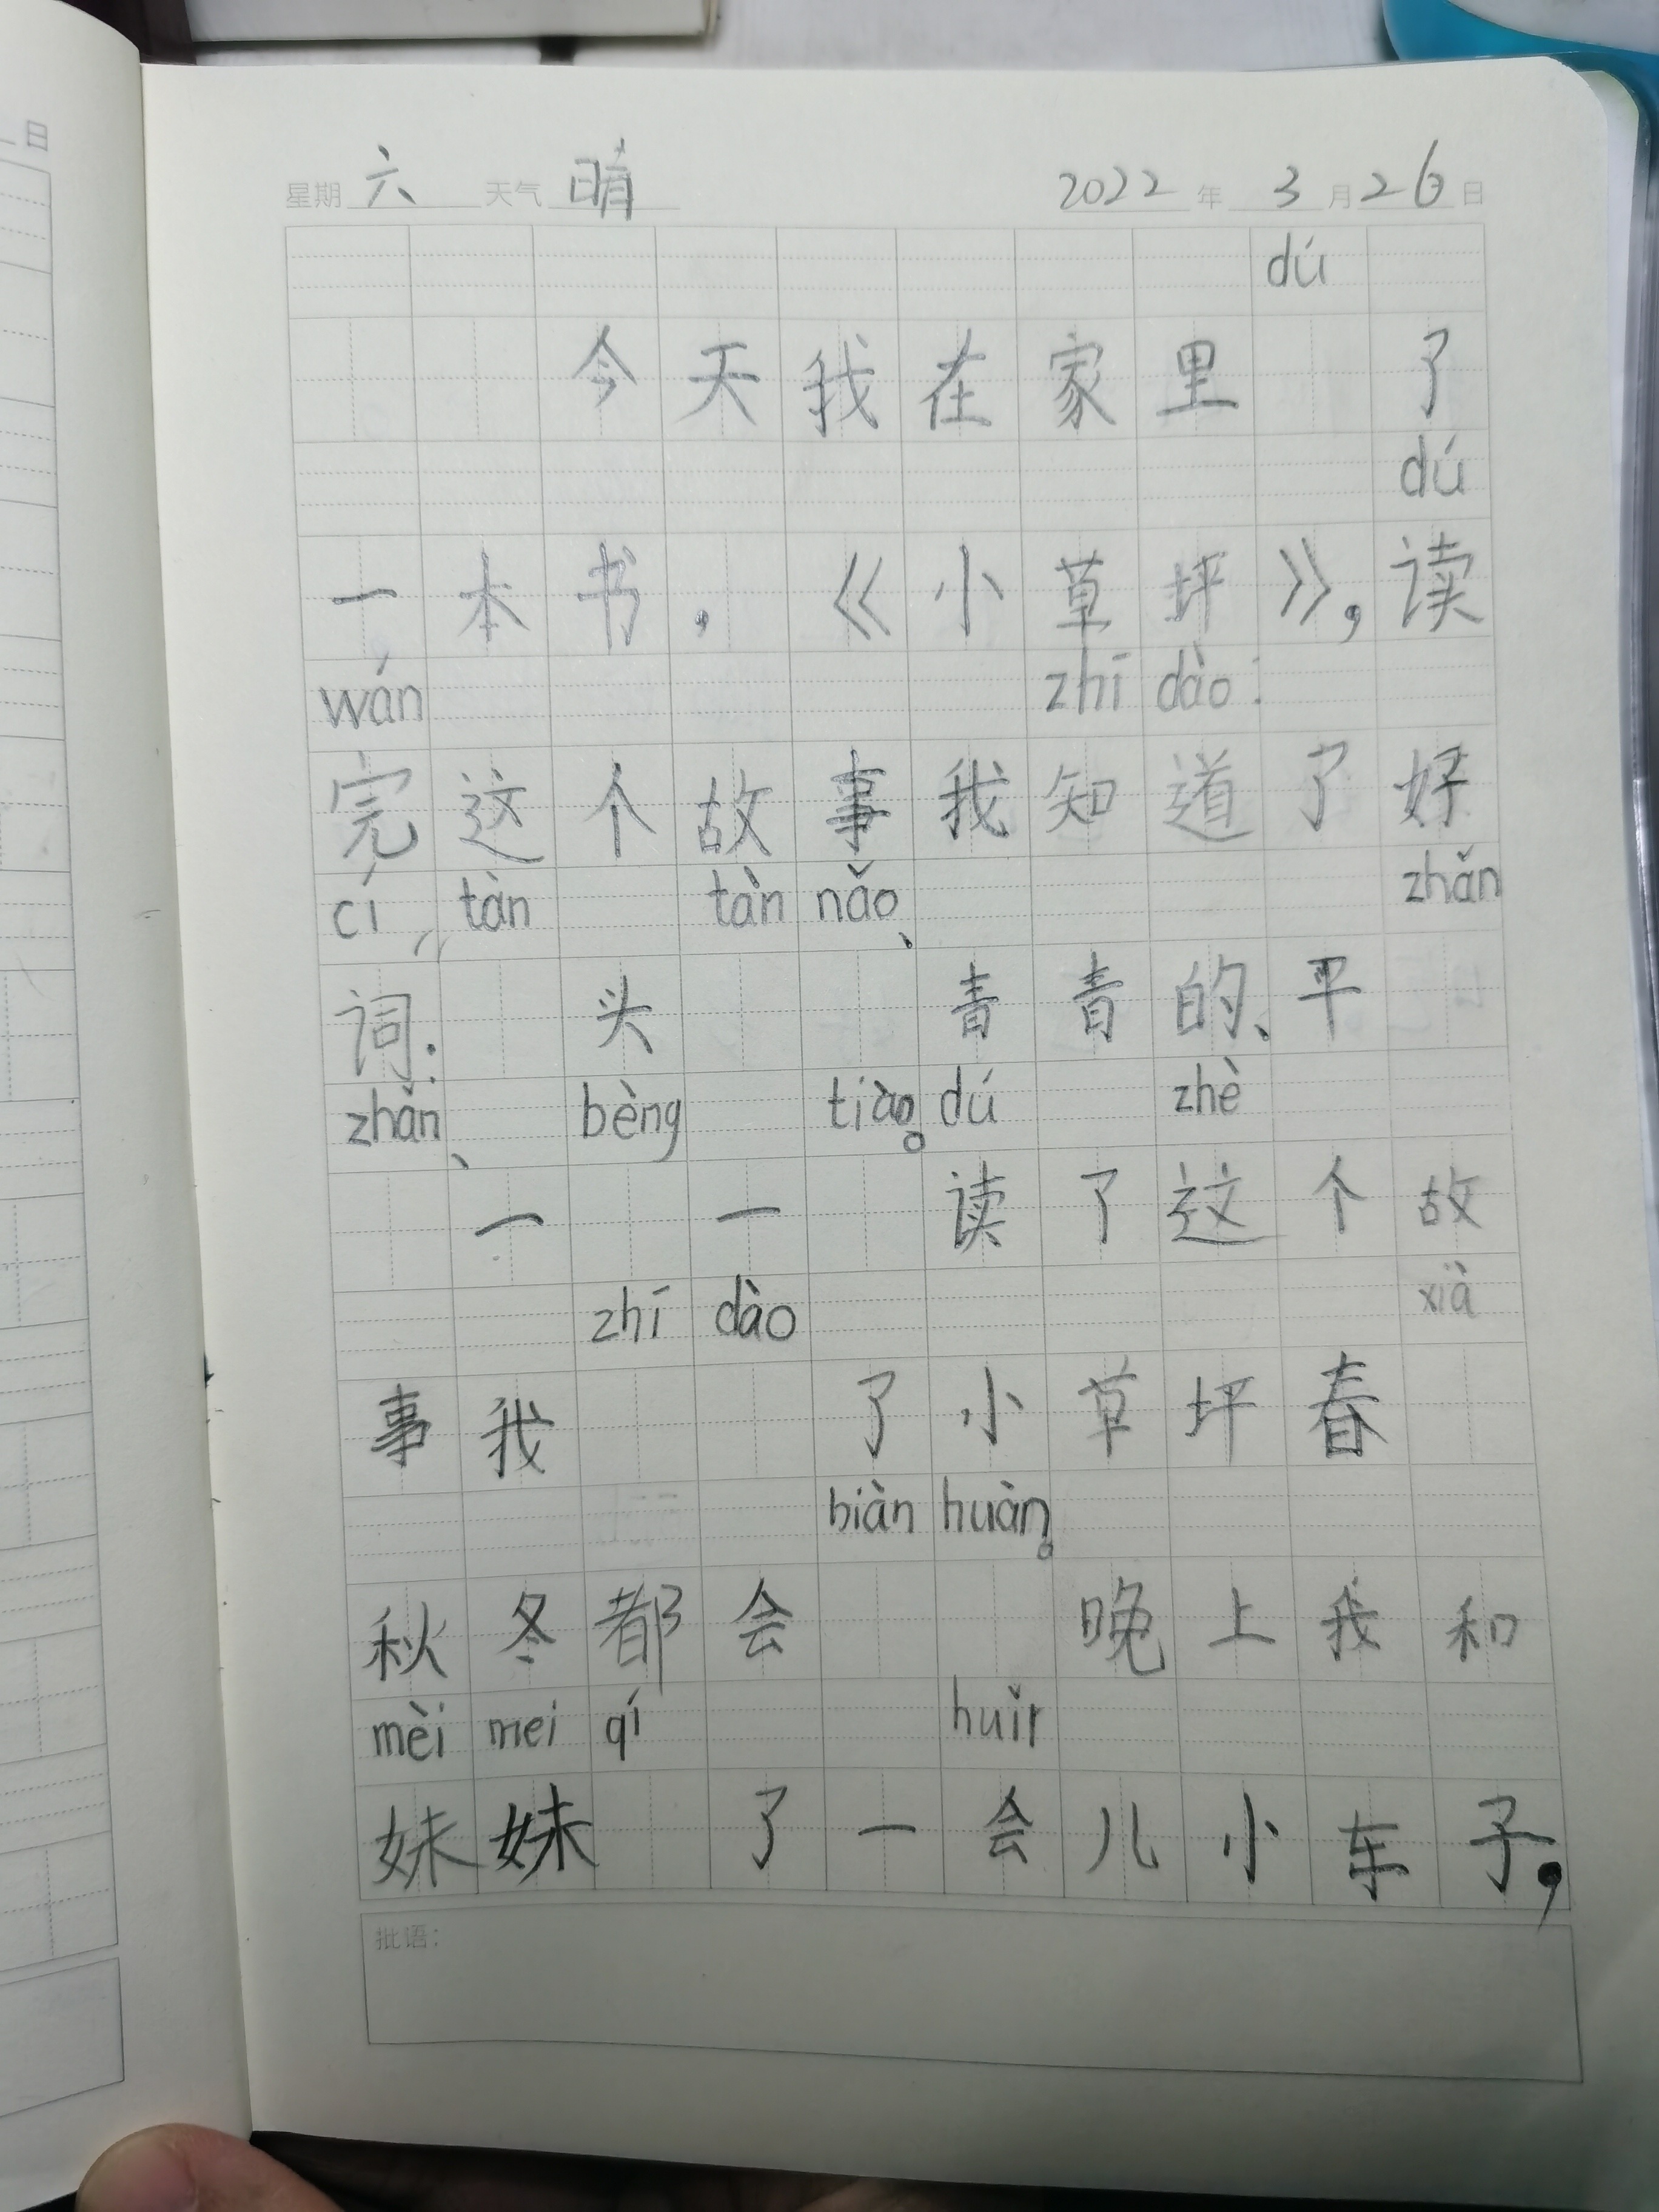 日
星期 六 天气 晴 2022 年 3 月 26 日
dú
今天我在家里 了
dú
一本书，《小草坪》，读
wán zhī dào
完这个故事我知道了好
cí tàn tàn nǎo、 zhǎn
词： 头 青青的、平
zhǎn、 bèng tiào。 dú zhè
一 一 读了这个故
zhī dào xià
事我 了小草坪春
biàn huàn。
秋冬都会 晚上我和
mèi mei qí huǐr
妹妹 了一会儿小车子，
批语：